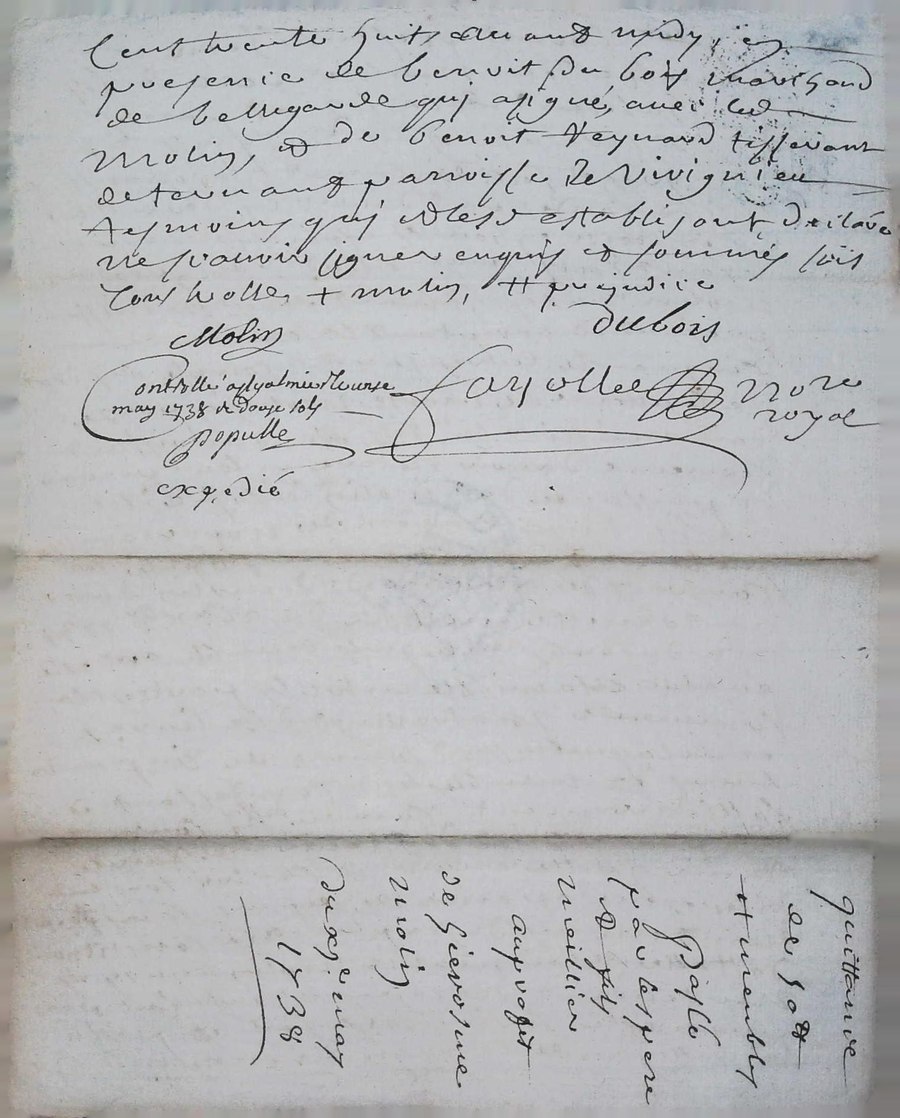 Cent trente huit avant midy, en
presence de benoit du bois marchand
de bellegarde qui a signé, avec led
Molin, et de benoit Heynard tisserant
de parroisse de Virignieu
tesmoins qui et lesd establis ont declaré
ne scavoir signer enquis et sommés
+ molin, # prejudice
Molin dubois
Controllé a st galmier le unze
may 1738 r douze sols
Populle
fayolle Nore
royal
expedié
quittance
de 50tt
et meubles
Passé
par les pere
et fils
meillier
au profit
de hierosme
molin
du xe may
1738